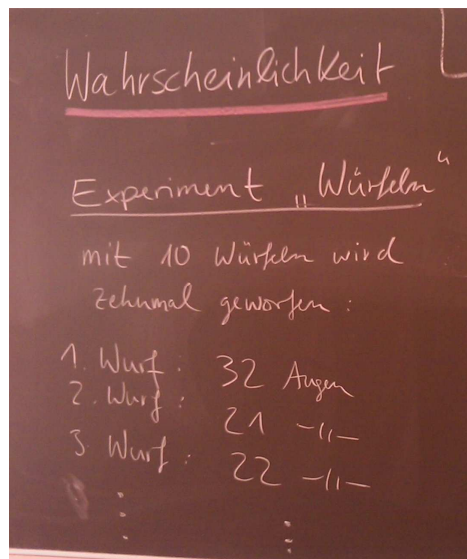 Wahrscheinlichkeit
Experiment „Würfeln“
mit 10 Würfeln wird
zehnmal geworfen:
1. Wurf: 32 Augen
2. Wurf: 21 -〃-
3. Wurf: 22 -〃-